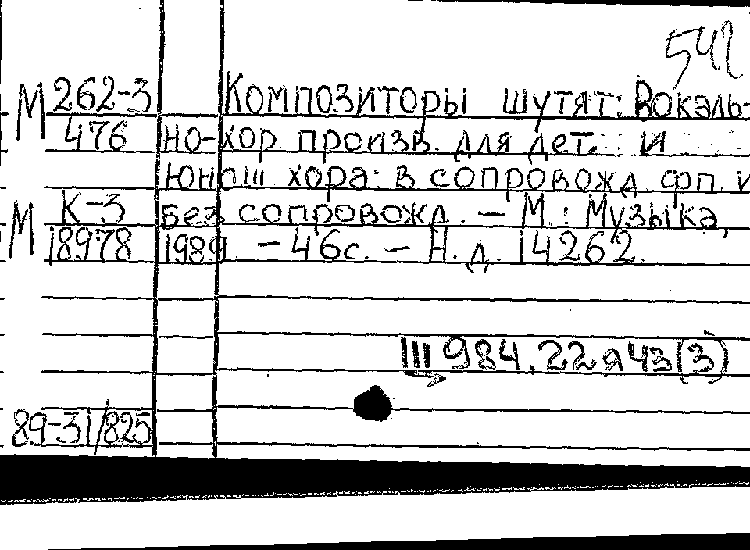 542
М 262-3 Композиторы шутят: Вокаль-
476 но-хор произв. для дет. и
юнош хора: в сопровожд фп. и
М К-3 без сопровожд. – М.: Музыка,
18978 1989. – 46с. – Н. д. 14262.
Щ 984.22я43(3)
89-31/825